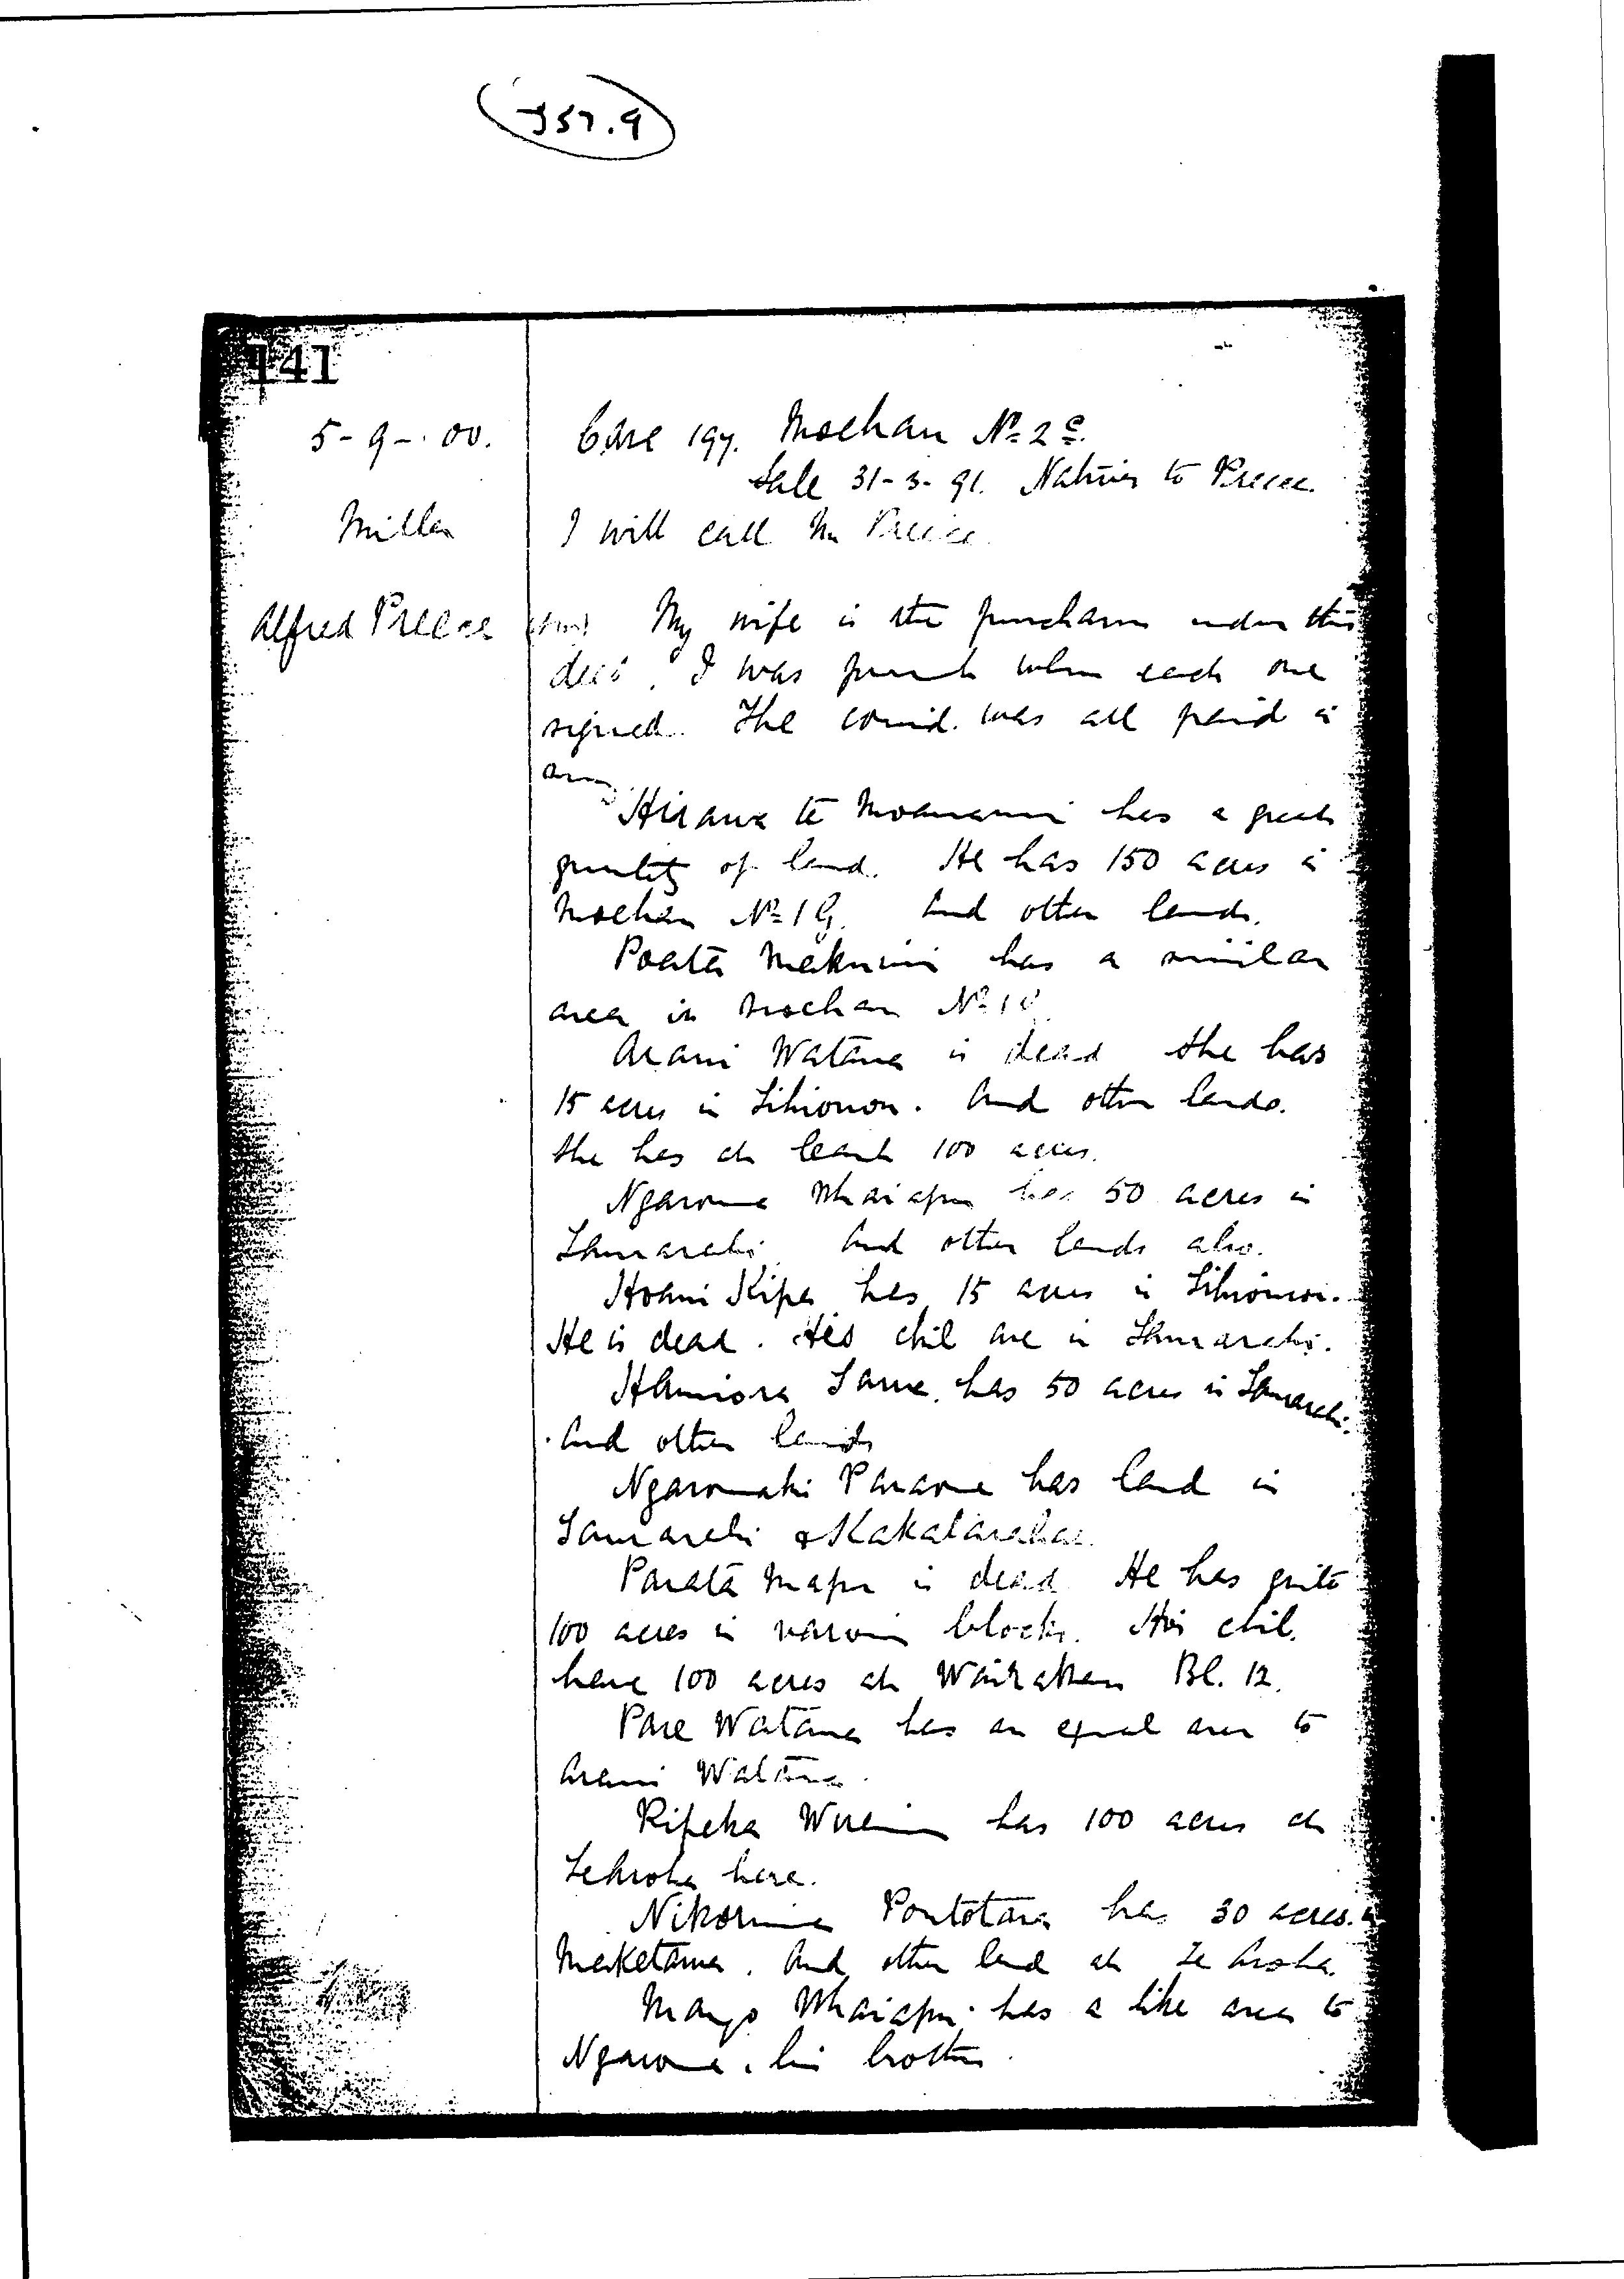 J57.9
141
5-9-.00.
Case 197. Moehau No 2C.
Sale 31-3-91. Natives to Preece.
Miller
I will call Mr Preece.
Alfred Preece
My wife is the purchaser under this
deed. I was present when each one
signed. The consid. was all paid in
Hirawa te Moananui has a great
quantity of land. He has 150 acres in
Moehau No 1G. And other lands.
Poata Makuini has a similar
area in Moehau No 1
Arani Watana is dead She has
15 acres in And other lands.
She has at least 100 acres.
Ngarome Whaiapu has 50 acres in
And other lands also.
Hoani Kipa has 15 acres in
He is dead. His chil are in
has 50 acres in
And other lands
Ngaromaki Paraone has land in
&
Parata Mapu is dead. He has quite
100 acres in various blocks. His chil.
have 100 acres at Bl. 12.
Pare Watana has an equal area to
Arani Watana.
Ripeka has 100 acres at
Te Aroha here.
Nikorima Poutotara has 30 acres in
Maketana. And other land at Te Aroha.
Mango Whaiapu has a like area to
Ngarome, his brother.